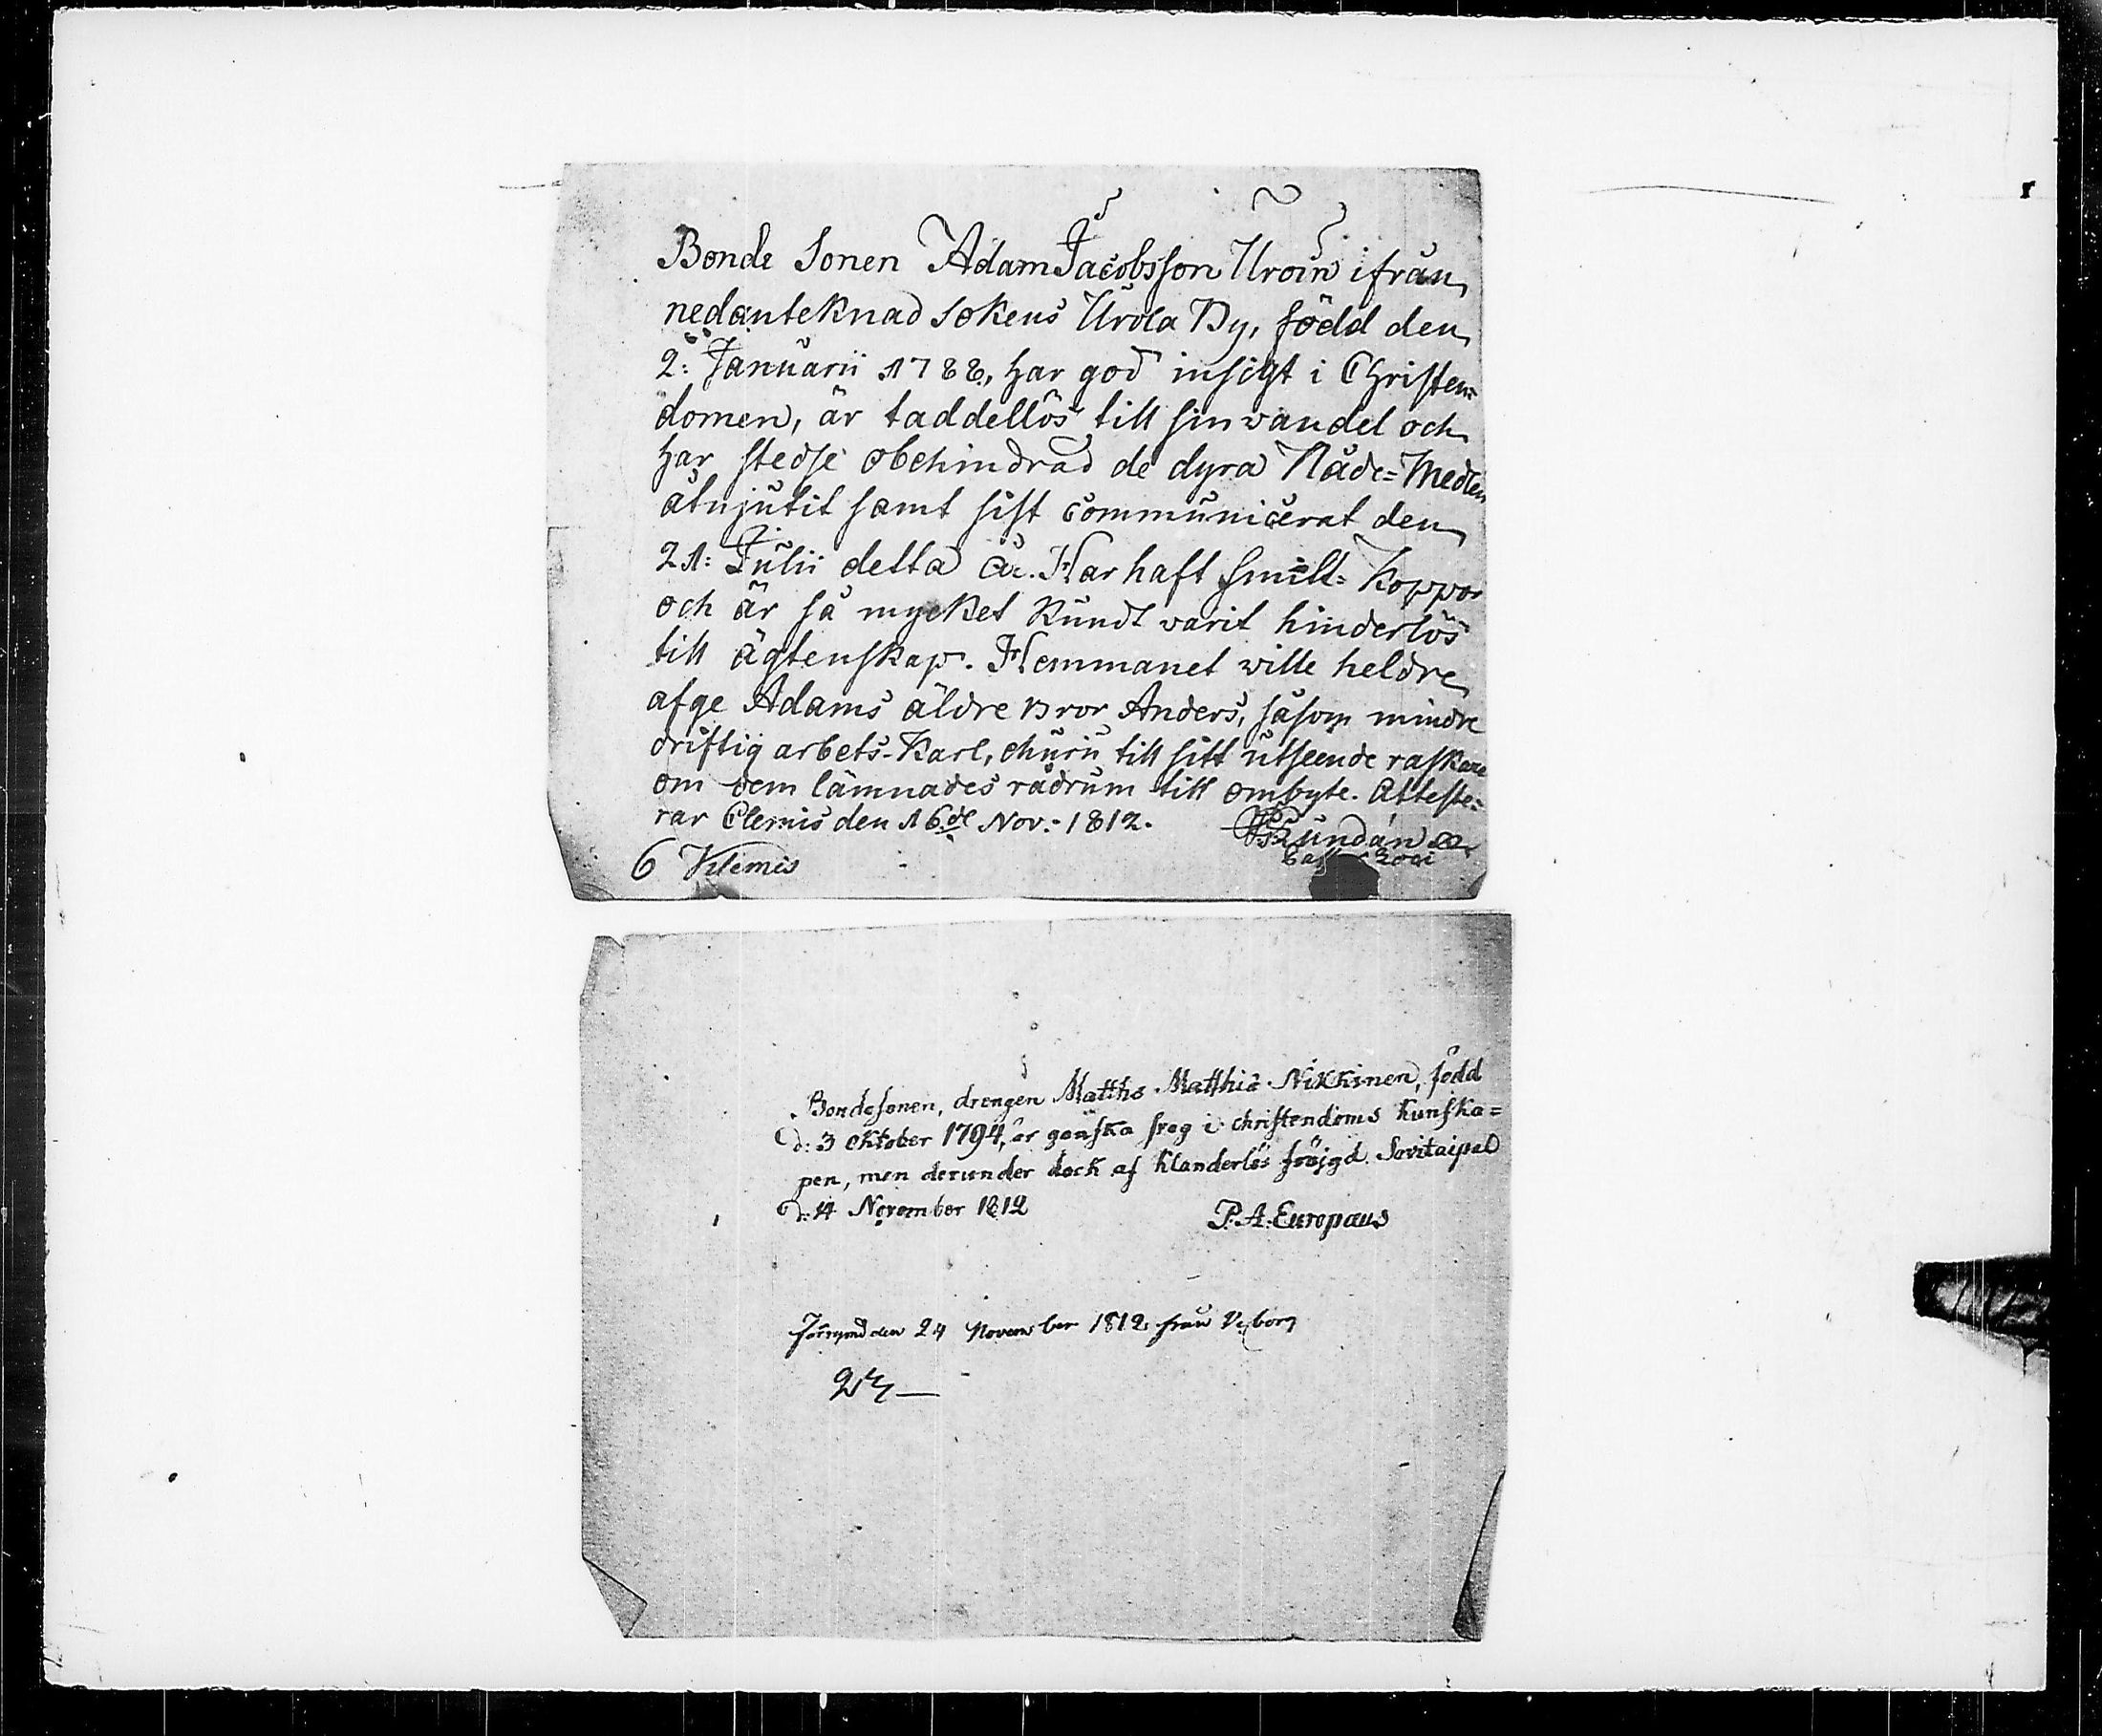 Bonde Sonen Adam Jacobsson Uroin ifrån
nedanteknad sokens Urola By, född den
2: Januarii 1788, har god insigt i Christen-
domen, är taddellös till sin wandel och
har stedse obehindrad de dyra Nåde=Medlen
åtnjutit samt sist communicerat den
21: Julii detta år. Har haft Smitt= Koppor
och är så mycket Kundt varit hinderlös
till ägtenskap. Hemmanet wille heldre
afge Adams äldre Bror Anders, såsom mindre
driftig arbets-Karl, ehuru till sitt utseende raskare
om dem lämnades rådrum till ombyte. Atteste=
rar Clemis den 16de Nov: 1812.
6 Klemis
Bondesonen, drengen Matths Matthis Nikkinen, född
d: 3 Oktober 1794, är ganska svag i christendoms kunska=
pen, men derunder dock af klanderlös fröjgd. Savitaipal
d: 14 November 1812
P. A. Europæus
den 24 November 1812 från Viborg